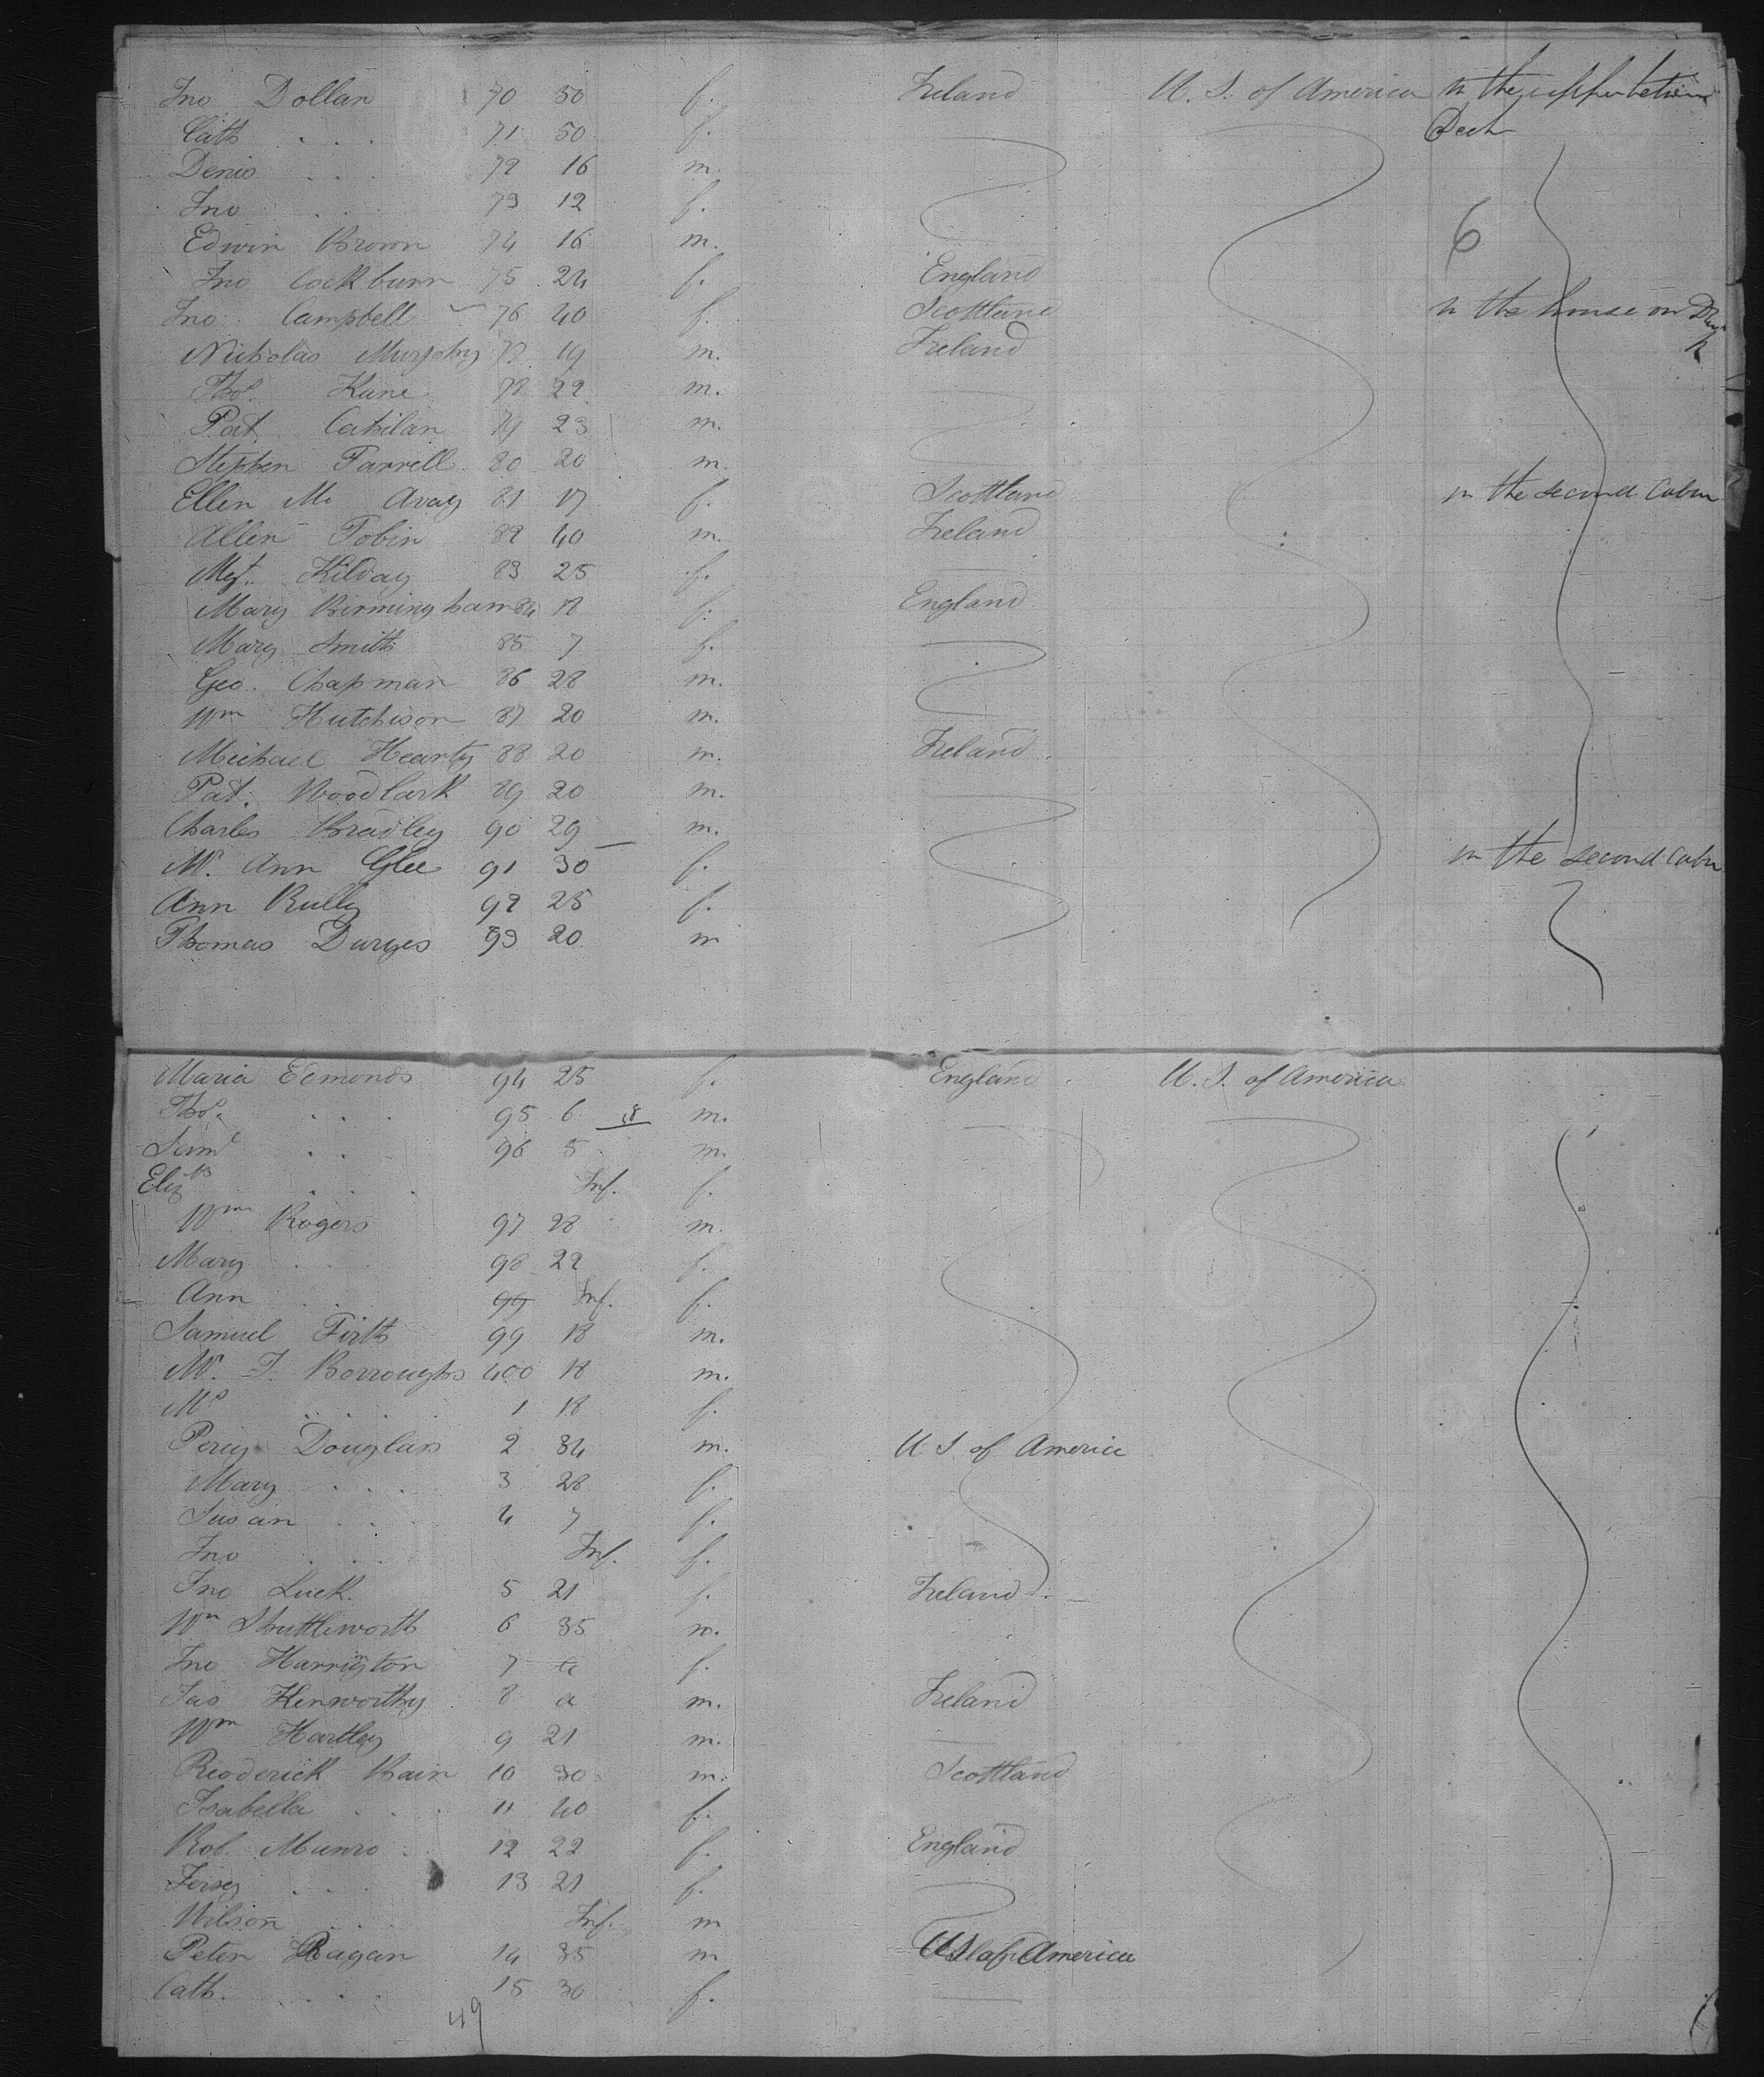 Jno Dollan 70 50 f. Ireland U. S. of America in the upper between
Cath . . . 71 50 f. Deck
Denis . . 72 16 m.
Jno . . . 73 12 f.
Edwin Brown 74 16 m. 6
Jno Cockburn 75 24 f. England
Jno Campbell 76 40 f. Scottland in the house on Deck
Nicholas Murphy 77 19 m. Ireland
Thos. Kane 78 22 m.
Pat Cahilan 79 23 m.
Stephen Farrell 80 20 m.
Ellen Mc Avay 81 17 f. Scottland in the second Cabin
Allen Tobin 82 40 m. Ireland
Mgt. Kilday 83 25 f.
Mary Birmingham 84 18 f. England
Mary Smith 85 7 f.
Geo. Chapman 86 28 m.
Wm Hutchison 87 20 m.
Michael Hearty 88 20 m. Ireland
Pat. Woodlark 89 20 m.
Charles Bradley 90 29 m.
M. Ann Glee 91 30 f. in the second Cabin
Ann Rully 92 25 f.
Thomas Durges 93 20 m
Maria Edmonds 94 25 f. England U. S. of America
Thos. . . . 95 6 18 m.
Saml . . 96 5 m.
Elizth . . . Inf. f.
Wm Rogers 97 28 m.
Mary . . . 98 22 f.
Ann . . 99 Inf. f.
Samuel Firth 99 18 m.
M. F. Borroughs 400 18 m.
Ms . . . . 1 18 f.
Percy Douglas 2 34 m. U S of America
Mary . . . . 3 28 f.
Susan . . . 4 7 f.
Jno . . . Inf. f.
Jno Luck. 5 21 f. Ireland
Wm Shuttleworth 6 35 m.
Jno Harrington 7 a f.
Jas Kenworthy 8 a m. Ireland
Wm Hartley 9 21 m.
Rioderick Bain 10 30 m. Scottland
Isabella . . . 11 40 f.
Rob. Munro . 12 22 f. England
. . . 13 21 f.
Wilson . . Inf. m
Peter Ragan 14 35 m US of America
Cath. . . . 15 30 f.
49